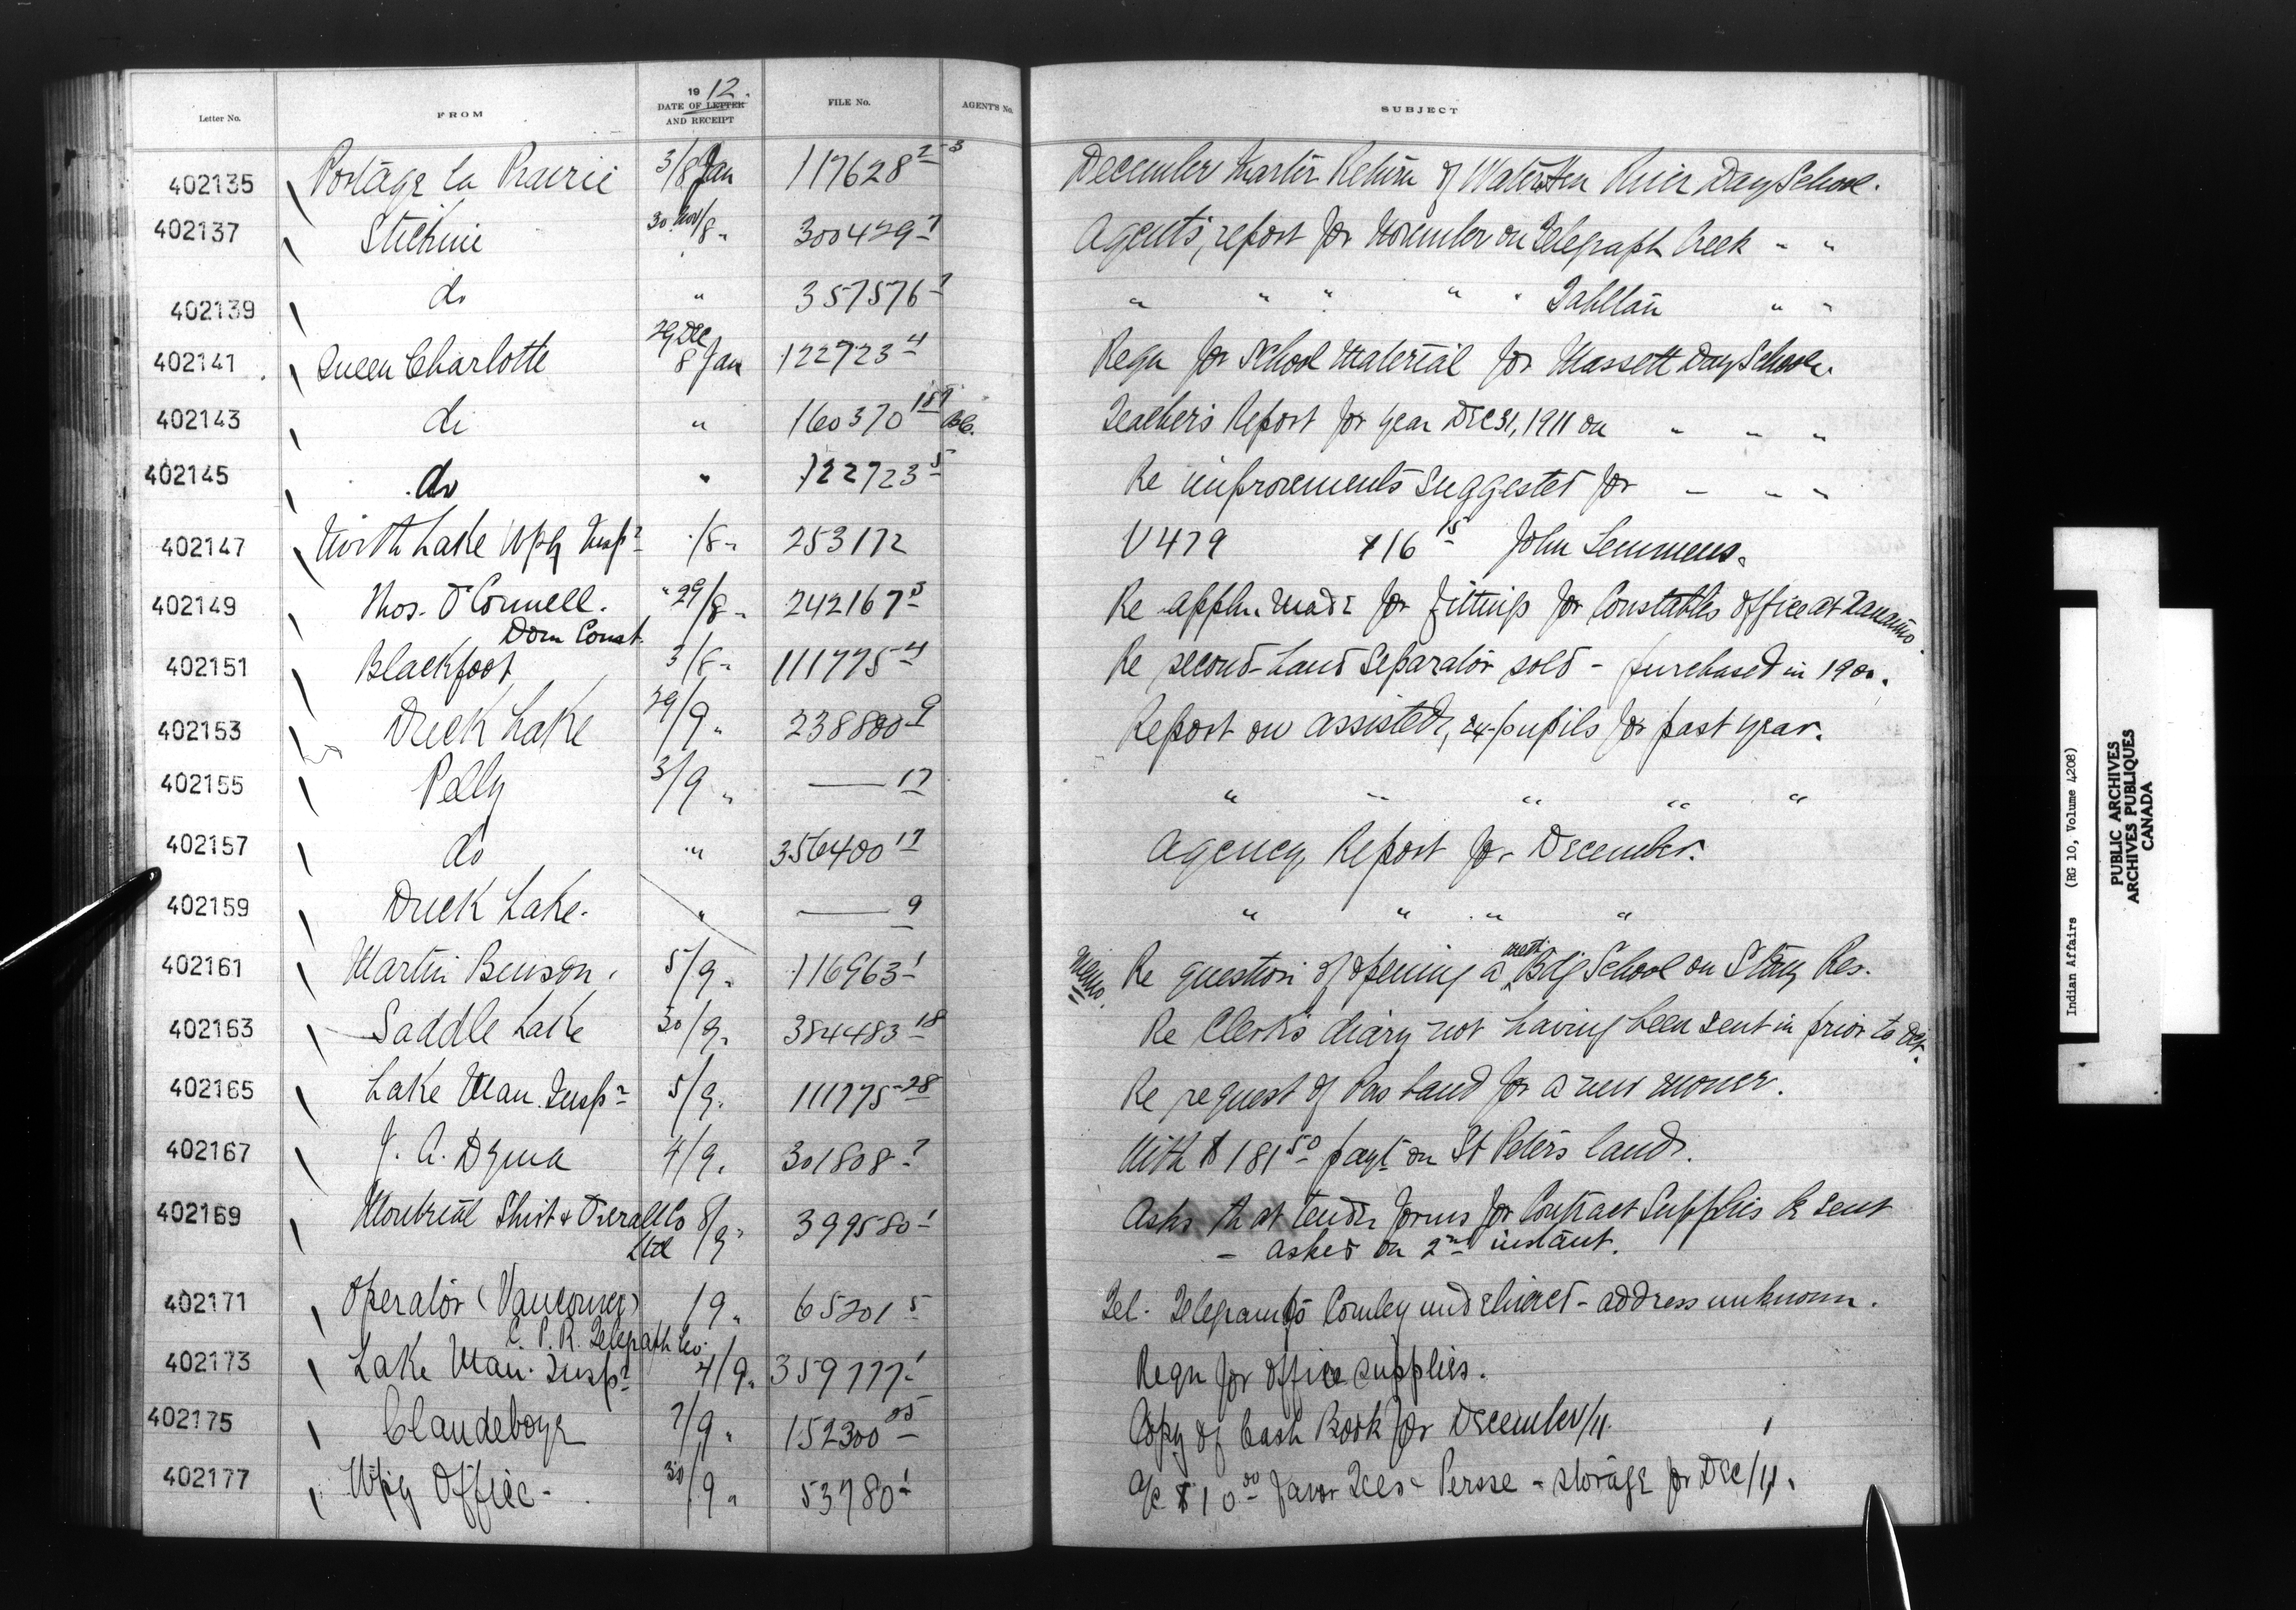 Letter No. FROM 1912. DATE OF LETTER AND RECEIPT FILE No. AGENT'S No. SUBJECT
402135 Portage la Prairie 3/8 Jan 117628 2-3 December Quarter Return of Waterhen River Day School.
402137 Stickine 30 Nov/8 " 300429-1 Agent's report for November on Telegraph Creek " "
402139 do " 357576-1 " " " " " Tahltan " "
402141 Queen Charlotte 29 Dec 8 Jan 122723-4 Reqn for School Material for Massett Day School.
402143 do " 160370 Teacher's Report for year Dec 31, 1911 on " " "
402145 do " 122723-5 Re improvements suggested for " " "
402147 North Lake Wpg Insp. /8 " 253172 V479 $16 15 John Semmens.
402149 Thos. O'Connell. Dom Const. "29/8 " 242167-3 Re appln. made for fittings for Constables office at Nanaimo.
402151 Blackfoot 3/8 " 111775-4 Re second-hand Separator sold - purchased in 1900.
402153 Duck Lake 29/9 " 238800-9 Report on assisted, ex-pupils for past year.
402155 Pelly 3/9 " — 17 " " " " "
402157 do " 356400-17 Agency Report for December.
402159 Duck Lake. " — 9 " " " "
402161 Martin Benson. 5/9 " 116963-1 Memo. Re question of opening a Meth. Bdg School on Stony Res.
402163 Saddle Lake 30/9 " 384483-18 Re Clerk's diary not having been sent in prior to Oct.
402165 Lake Man. Insp. 5/9 " 111775-28 Re request of Pas band for a new mower.
402167 4/9 " 301808-7 With $181 50 payt on St Peter's lands.
402169 Montreal Shirt & Overall Co Ltd 8/9 " 399580-1 Asks that tender forms for Contract Supplies be sent
- asked on 2nd instant.
402171 Operator (Vancouver) C. P. R. Telegraph Co. /9 " 65201-5 Tel. Telegram to Comley undelivered - address unknown.
402173 Lake Man. Insp. 4/9 " 359777-1 Reqn for office supplies.
402175 Clandeboye 7/9 " 152300 Copy of Cash Book for December/11.
402177 Wpg Office - 30/9 " 53780-1 a/c $10 00 favor Tees & Persse - storage for Dec/11.
Indian Affairs (RG 10, Volume 4208)
PUBLIC ARCHIVES
ARCHIVES PUBLIQUES
CANADA